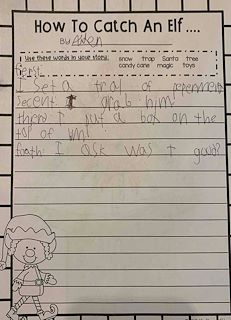 How To Catch An Elf....
By
Use these words in your story:
snow trap Santa tree
candy cane magic toys
ferst
I Set a trap of
Secent: I grab him!
then I put a box on the
top of him!
I ask was I good?